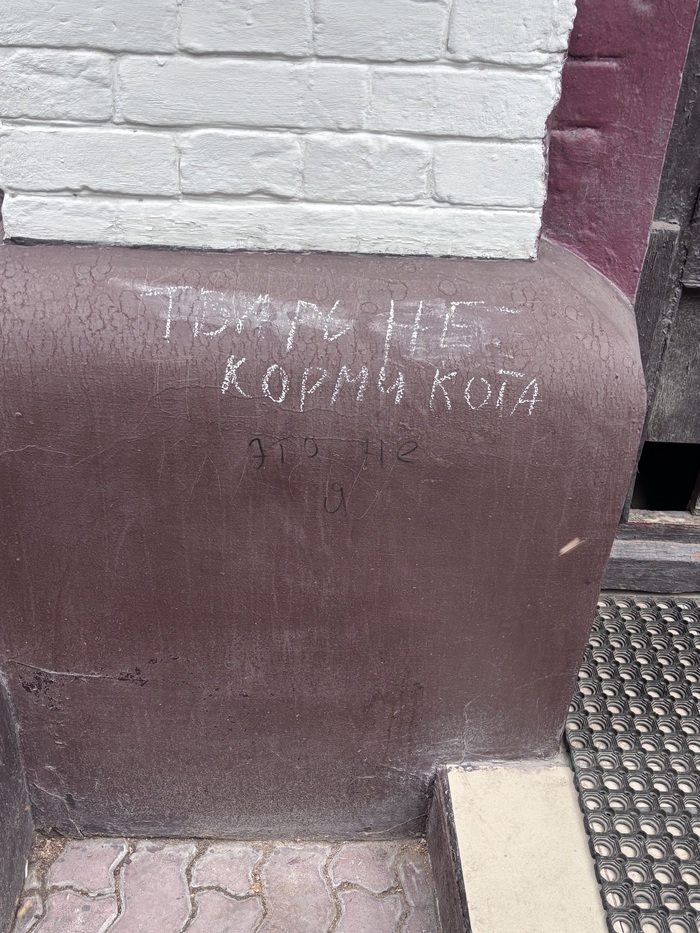 ТВАРЬ НЕ
КОРМИ КОТА
это не
я